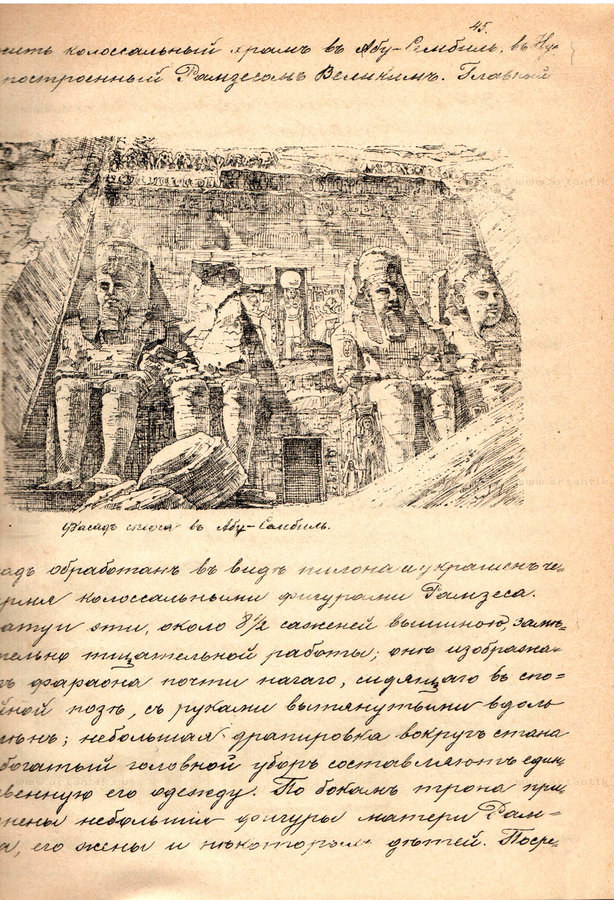 45.
сить колоссальный храмъ въ Абу-Сембиль, въ Ну-
построенный Рамзесомъ Великимъ. Главной
Фасадъ спеоса въ Абу-Сембиль.
адъ обработанъ въ видѣ пилона и украшенъ че-
рмя колоссальными фигурами Рамзеса.
атуи эти, около 8½ саженей вышиною, замѣ-
тельно тщательной работы; онѣ изобража-
тъ фараона почти нагаго, сидящаго въ спо-
йной позѣ, съ руками вытянутыми вдоль
лѣнъ; небольшая драпировка вокругъ стана
богатый головной уборъ составляютъ един
венную его одежду. По бокамъ трона при
нены небольшія фигуры матери Рам-
а, его жены и нѣкоторыхъ дѣтей. Посре-